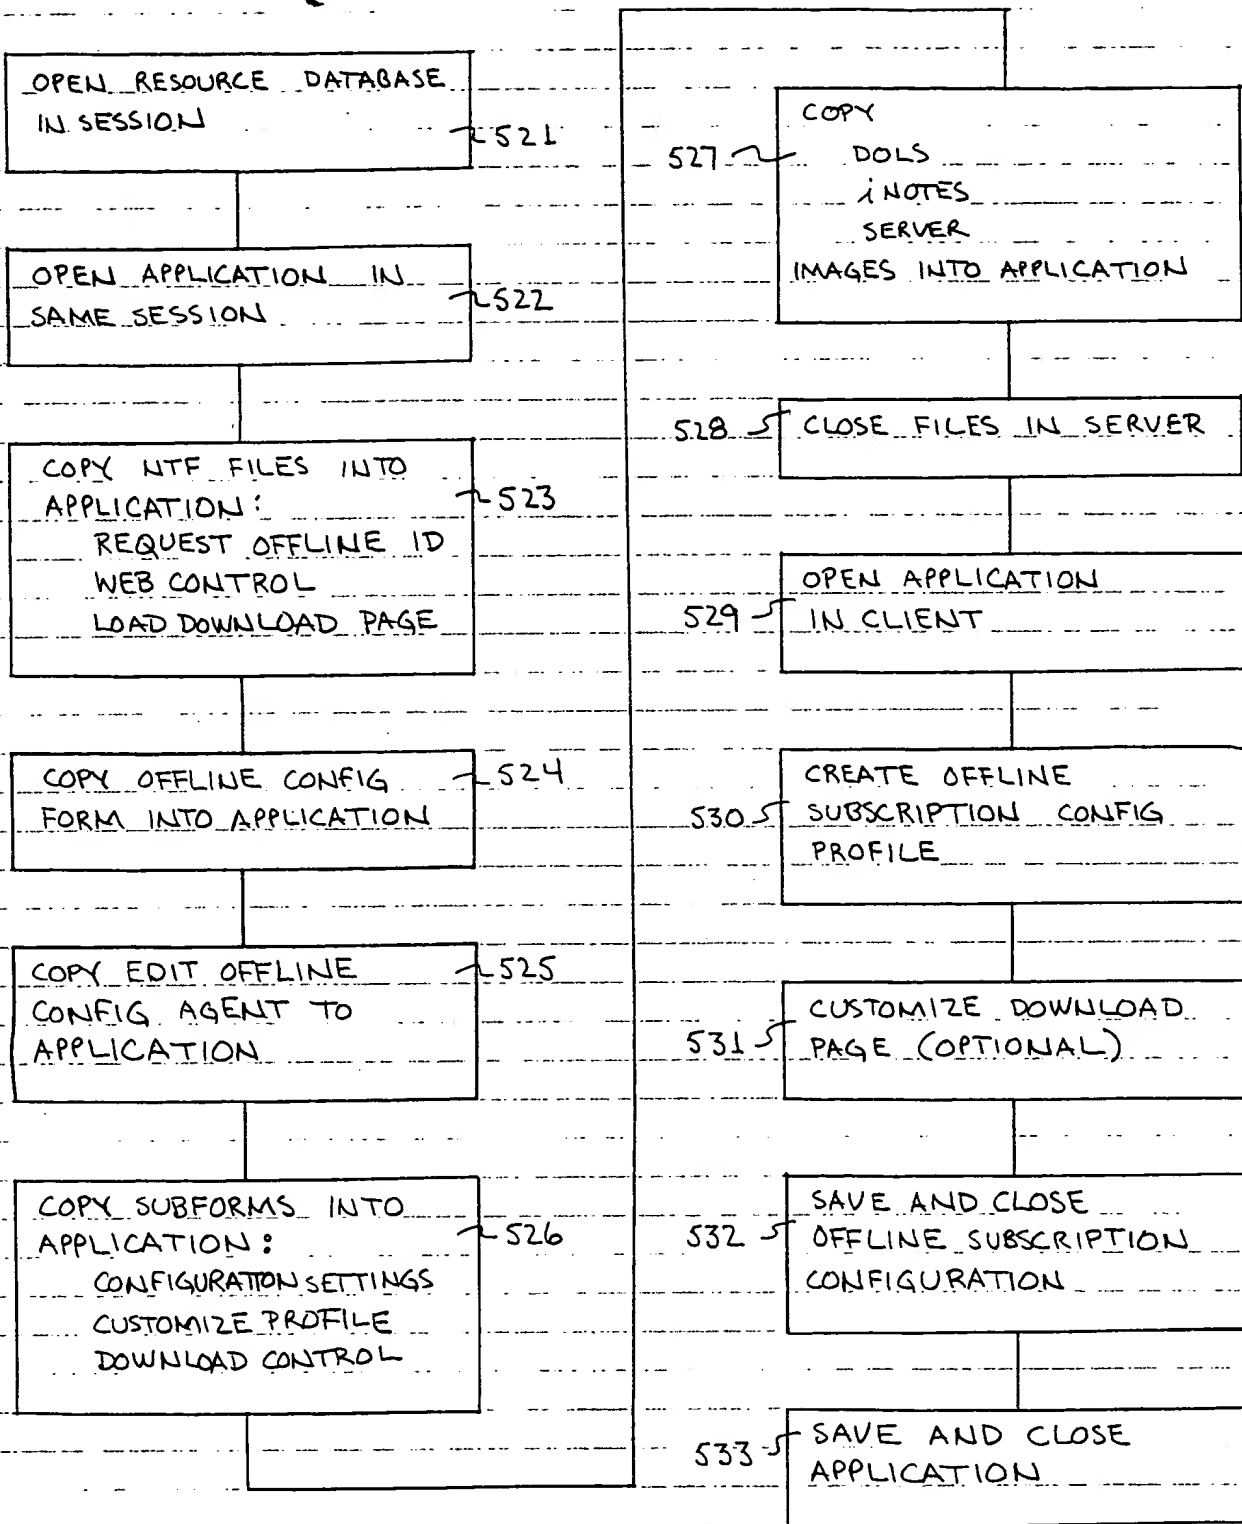 OPEN RESOURCE DATABASE
IN SESSION
521
OPEN APPLICATION IN
SAME SESSION
522
COPY NTF FILES INTO
APPLICATION:
REQUEST OFFLINE ID
WEB CONTROL
LOAD DOWNLOAD PAGE
523
COPY OFFLINE CONFIG
FORM INTO APPLICATION
524
COPY EDIT OFFLINE
CONFIG AGENT TO
APPLICATION
525
COPY SUBFORMS INTO
APPLICATION:
CONFIGURATION SETTINGS
CUSTOMIZE PROFILE
DOWNLOAD CONTROL
526
COPY
DOLS
iNOTES
SERVER
IMAGES INTO APPLICATION
527
CLOSE FILES IN SERVER
528
OPEN APPLICATION
IN CLIENT
529
CREATE OFFLINE
SUBSCRIPTION CONFIG
PROFILE
530
CUSTOMIZE DOWNLOAD
PAGE (OPTIONAL)
531
SAVE AND CLOSE
OFFLINE SUBSCRIPTION
CONFIGURATION
532
SAVE AND CLOSE
APPLICATION
533